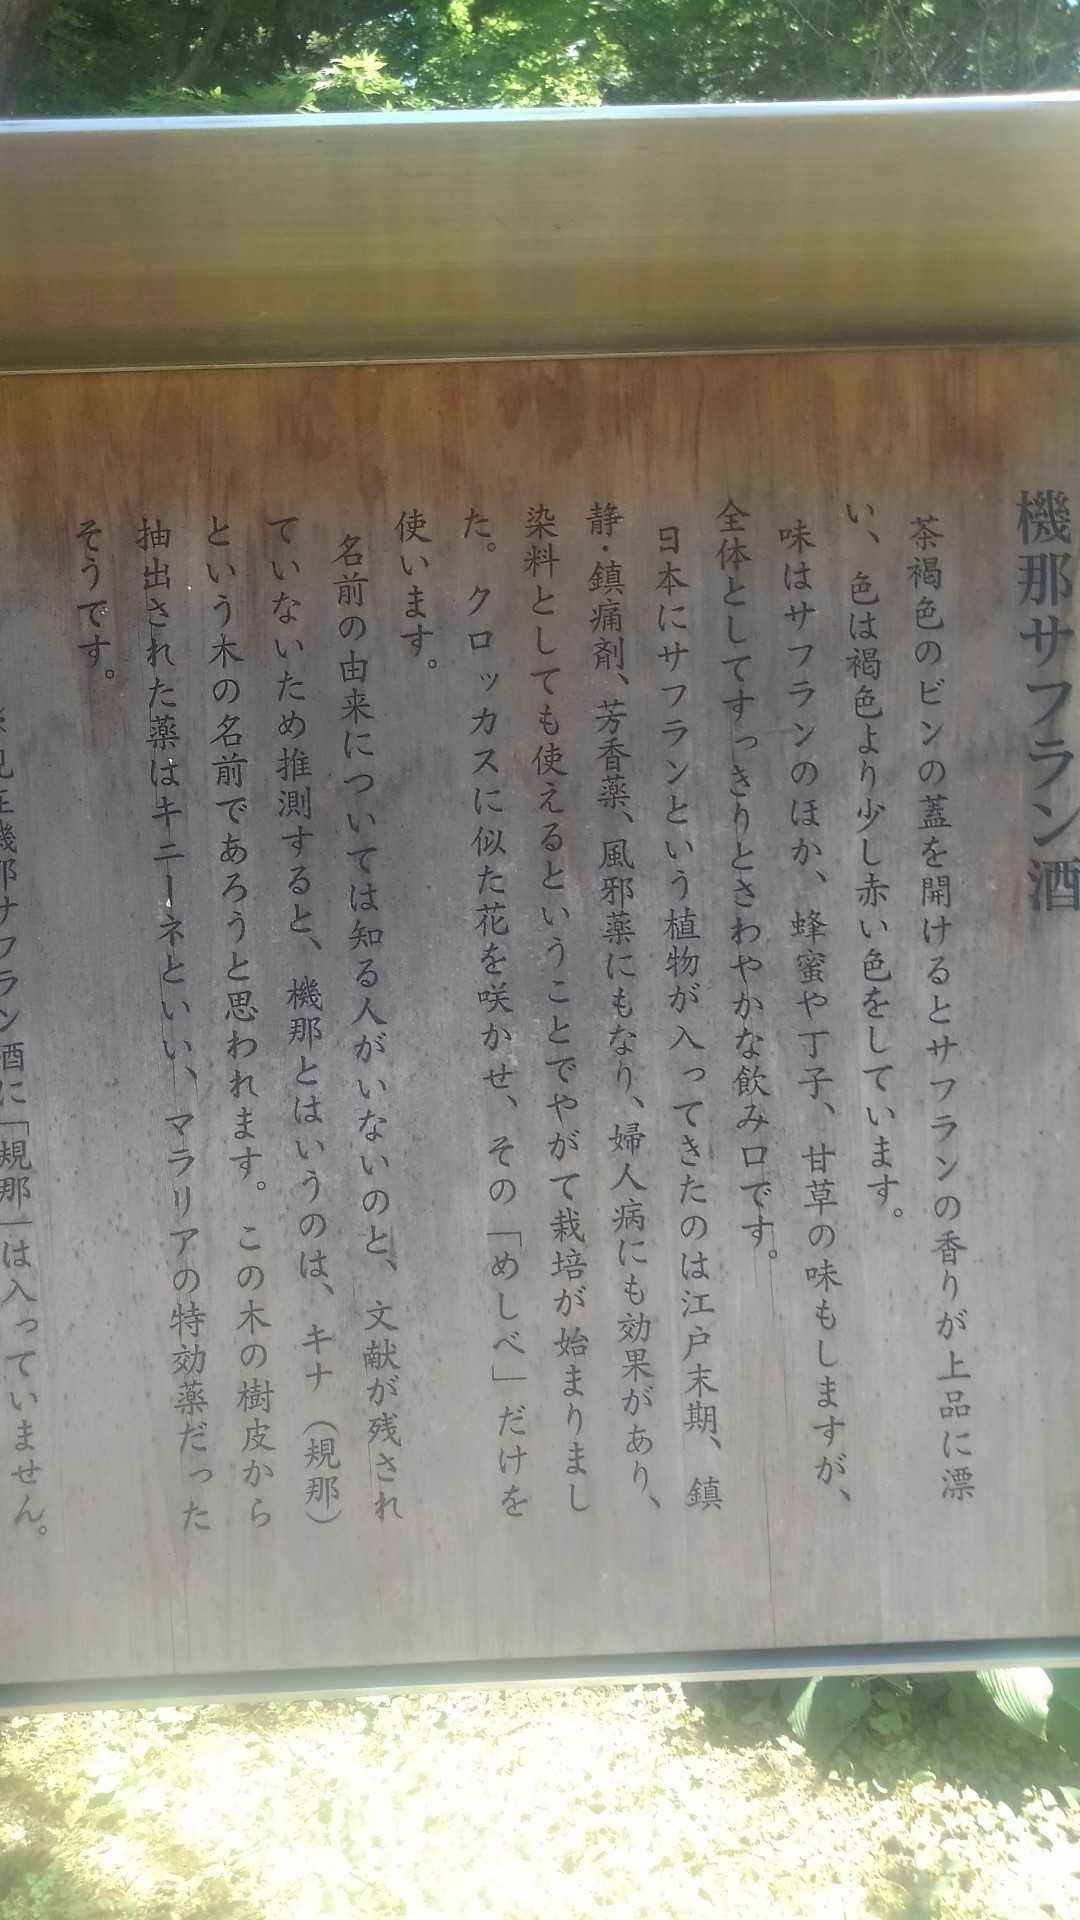 機那サフラン酒
茶褐色のビンの蓋を開けるとサフランの香りが上品に漂
い、色は褐色より少し赤い色をしています。
味はサフランのほか、蜂蜜や丁子、甘草の味もしますが、
全体としてすっきりとさわやかな飲み口です。
日本にサフランという植物が入ってきたのは江戸末期、鎮
静・鎮痛剤、芳香薬、風邪薬にもなり、婦人病にも効果があり、
染料としても使えるということでやがて栽培が始まりまし
た。クロッカスに似た花を咲かせ、その「めしべ」だけを
使います。
名前の由来については知る人がいないのと、文献が残され
ていないため推測すると、機那とはいうのは、キナ（規那）
という木の名前であろうと思われます。この木の樹皮から
抽出された薬はキニーネといい、マラリアの特効薬だった
そうです。
※現在機那サフラン酒に「規那」は入っていません。